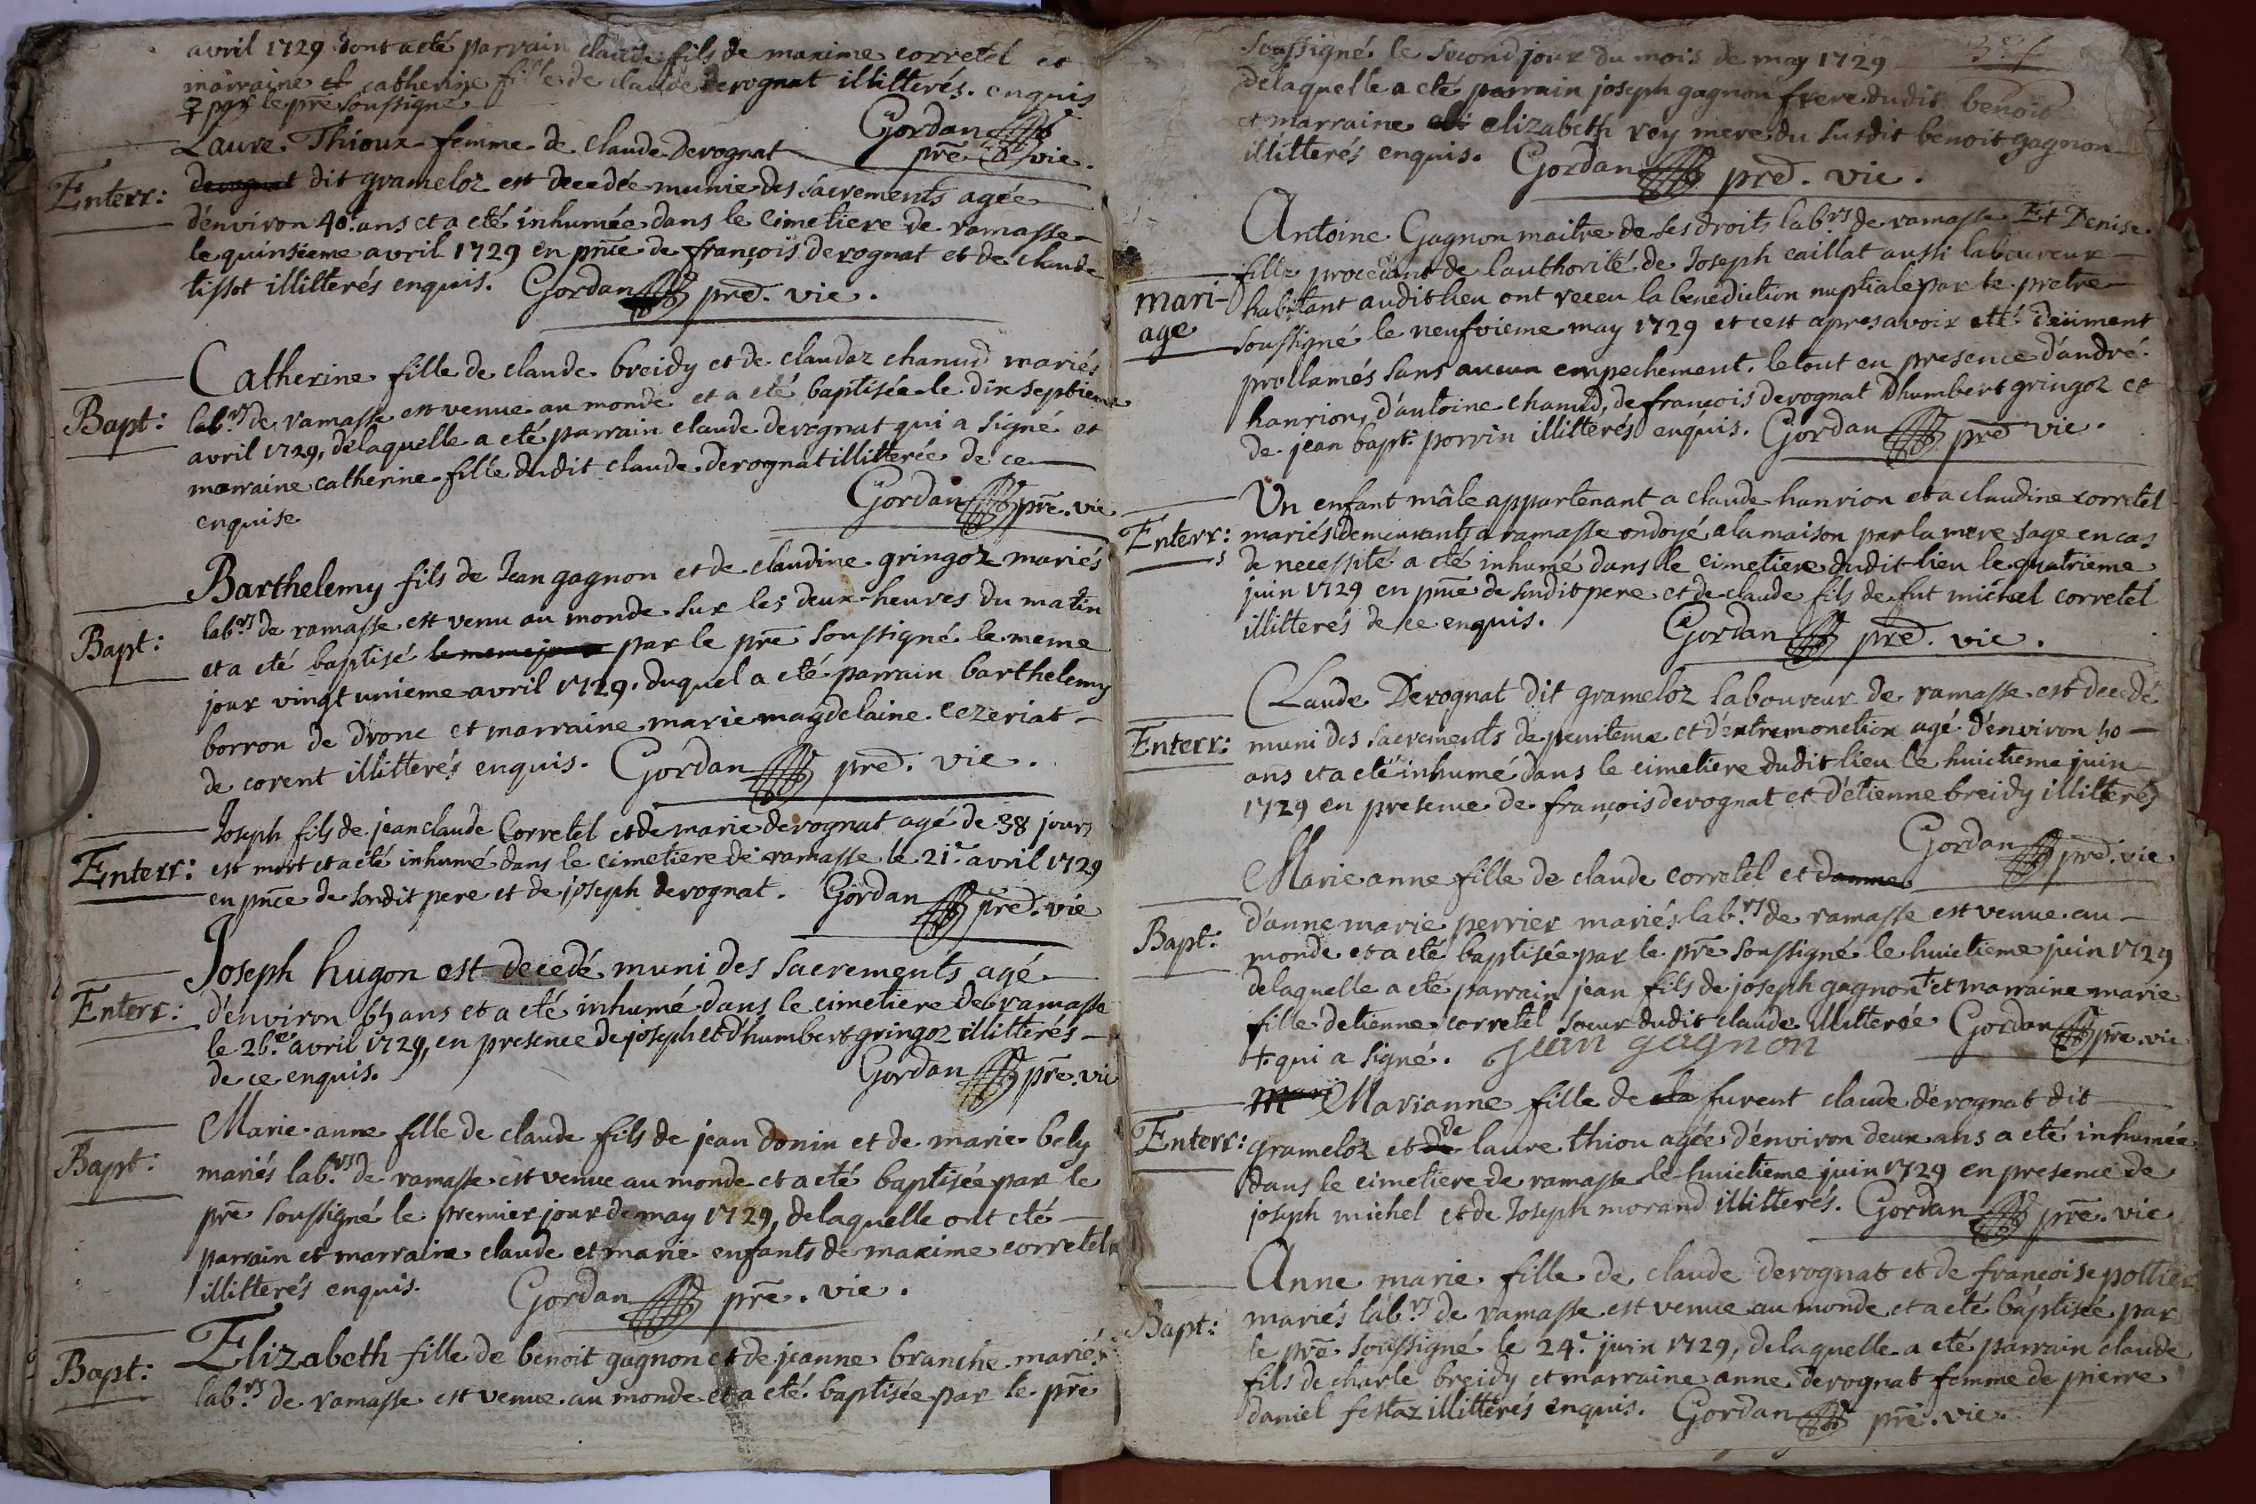 avril 1729 dont a eté parrain claude fils de maxime corretel et
marraine et catherine fille de claude derognat illitterés. enquis
par le pre soussigné
Laure Thioux femme de claude derognat
Gordan pre. vic.
Enterr:
derognat dit grameloz est decedée munie des sacrements agée
d'environ 40. ans et a eté inhumée dans le cimetiere de ramasse
le quinsieme avril 1729 en pnce de françois derognat et de claude
tissot illitterés enquis. Gordan pred. vic.
Catherine fille de claude breidy et de claudaz chanud mariés
Bapt:
labrs de ramasse est venue au monde et a eté baptisée le dix septieme
avril 1729, delaquelle a eté parrain claude derognat qui a signé et
marraine catherine fille dudit claude derognat illitterée de ce
enquise
Gordan pre. vic
Barthelemy fils de Jean gagnon et de claudine gringoz mariés
labrs de ramasse est venu au monde sur les deux heures du matin
Bapt:
et a eté baptisé le meme jour par le pre soussigné le meme
jour vingt unieme avril 1729. duquel a eté parrain barthelemy
borron de drone et marraine marie magdelaine cezeriat
de corent illitterés enquis. Gordan pred. vic.
Joseph fils de jean claude Corretel et de marie derognat agé de 38 jours
Enterr:
est mort et a eté inhumé dans le cimetiere de ramasse le 21e. avril 1729
en pnce de sondit pere et de joseph derognat. Gordan pred. vic
Joseph hugon est decedé muni des sacrements agé
Enterr:
d'environ 65 ans et a eté inhumé dans le cimetiere de ramasse
le 26.e avril 1729, en presence de joseph et d'humbert gringoz illitterés
de ce enquis.
Gordan pre. vic
Marie anne fille de claude fils de jean donin et de marie bely
Bapt:
mariés labrs de ramasse est venue au monde et a eté baptisée par le
pre soussigné le premier jour de may 1729, delaquelle ont eté
parrain et marraine claude et marie enfants de maxime corretel
illitterés enquis. Gordan pre. vic.
Elizabeth fille de benoit gagnon et de jeanne branche mariés
Bapt:
labrs de ramasse est venue au monde et a eté baptisée par le pre
soussigné le second jour du mois de may 1729
delaquelle a eté parrain joseph gagnon frere dudit benoit
et marraine elizabeth rey mere du susdit benoit gagnon
illitterés enquis. Gordan pred. vic.
Antoine Gagnon maitre de ses droits labrs de ramasse Et Denise
fille procedant de l'authorité de Joseph caillat aussi laboureur
mari-
habitant audit lieu ont receu la benediction nuptiale par le pretre
age
soussigné le neufvieme may 1729 et cest apres avoir eté deüment
proclamés sans aucun empechement. le tout en presence d'andré
hanrion, d'antoine chanud, de françois derognat d'humbert gringoz et
de jean bapt: porrin illitterés enquis. Gordan pred vic.
Un enfant mâle appartenant a claude hanrion et a claudine corretel
Enterr:
mariés demeurants a ramasse ondoyé a la maison par la mere sage en cas
de necessité a eté inhumé dans le cimetiere dudit lieu le quatrieme
juin 1729 en pnce de sondit pere et de claude fils de fut michel corretel
illitterés de ce enquis. Gordan pred. vic.
Claude Derognat dit grameloz laboureur de ramasse est decedé
Enterr:
muni des sacrements de penitence et d'extremonction agé d'environ 50
ans et a eté inhumé dans le cimetiere dudit lieu le huictieme juin
1729 en presence de françois derognat et d'étienne breidy illitterés
Gordan pred. vic
Marie anne fille de claude corretel et danne
d'anne marie perrier mariés labrs de ramasse est venue au
Bapt:
monde et a eté baptisée par le pre soussigné le huictieme juin 1729
delaquelle a eté parrain jean fils de joseph gagnon + et marraine marie
fille detienne corretel soeur dudit claude illitterée Gordan pre. vic
+ qui a signé. jean gagnon
mari Marianne fille de cla furent claude derognat dit
Enterr:
grameloz et de de laure thiou agée d'environ deux ans a eté inhumée
dans le cimetiere de ramasse le huictieme juin 1729 en presence de
joseph michel et de Joseph morand illitterés. Gordan pre. vic
Anne marie fille de claude derognat et de françoise pottier
Bapt:
mariés labrs de ramasse est venue au monde et a eté baptisée par
le pre soussigné le 24.e juin 1729, delaquelle a eté parrain claude
fils de charle breidy et marraine anne derognat femme de pierre
daniel festaz illitterés enquis. Gordan pre. vic.